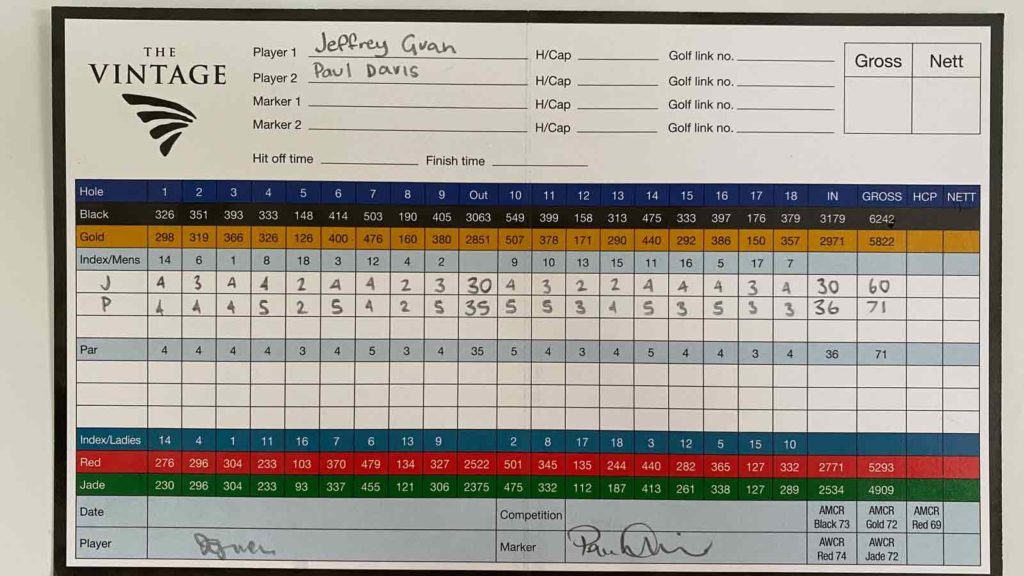 THE
VINTAGE
Player 1 Jeffrey Guan H/Cap Golf link no.
Player 2 Paul Davis H/Cap Golf link no.
Marker 1 H/Cap Golf link no.
Marker 2 H/Cap Golf link no.
Hit off time Finish time
Gross Nett
Hole 1 2 3 4 5 6 7 8 9 Out 10 11 12 13 14 15 16 17 18 IN GROSS HCP NETT
Black 326 351 393 333 148 414 503 190 405 3063 549 399 158 313 475 333 397 176 379 3179 6242
Gold 298 319 366 326 126 400 476 160 380 2851 507 378 171 290 440 292 386 150 357 2971 5822
Index/Mens 14 6 1 8 18 3 12 4 2 9 10 13 15 11 16 5 17 7
J 4 3 4 4 2 4 4 2 3 30 4 3 2 2 4 4 4 3 4 30 60
P 4 4 4 5 2 5 4 2 5 35 5 5 3 4 5 3 5 3 3 36 71
Par 4 4 4 4 3 4 5 3 4 35 5 4 3 4 5 4 4 3 4 36 71
Index/Ladies 14 4 1 11 16 7 6 13 9 2 8 17 18 3 12 5 15 10
Red 276 296 304 233 103 370 479 134 327 2522 501 345 135 244 440 282 365 127 332 2771 5293
Jade 230 296 304 233 93 337 455 121 306 2375 475 332 112 187 413 261 338 127 289 2534 4909
Date Competition
AMCR Black 73 AMCR Gold 72 AMCR Red 69
Player Marker
AWCR Red 74 AWCR Jade 72